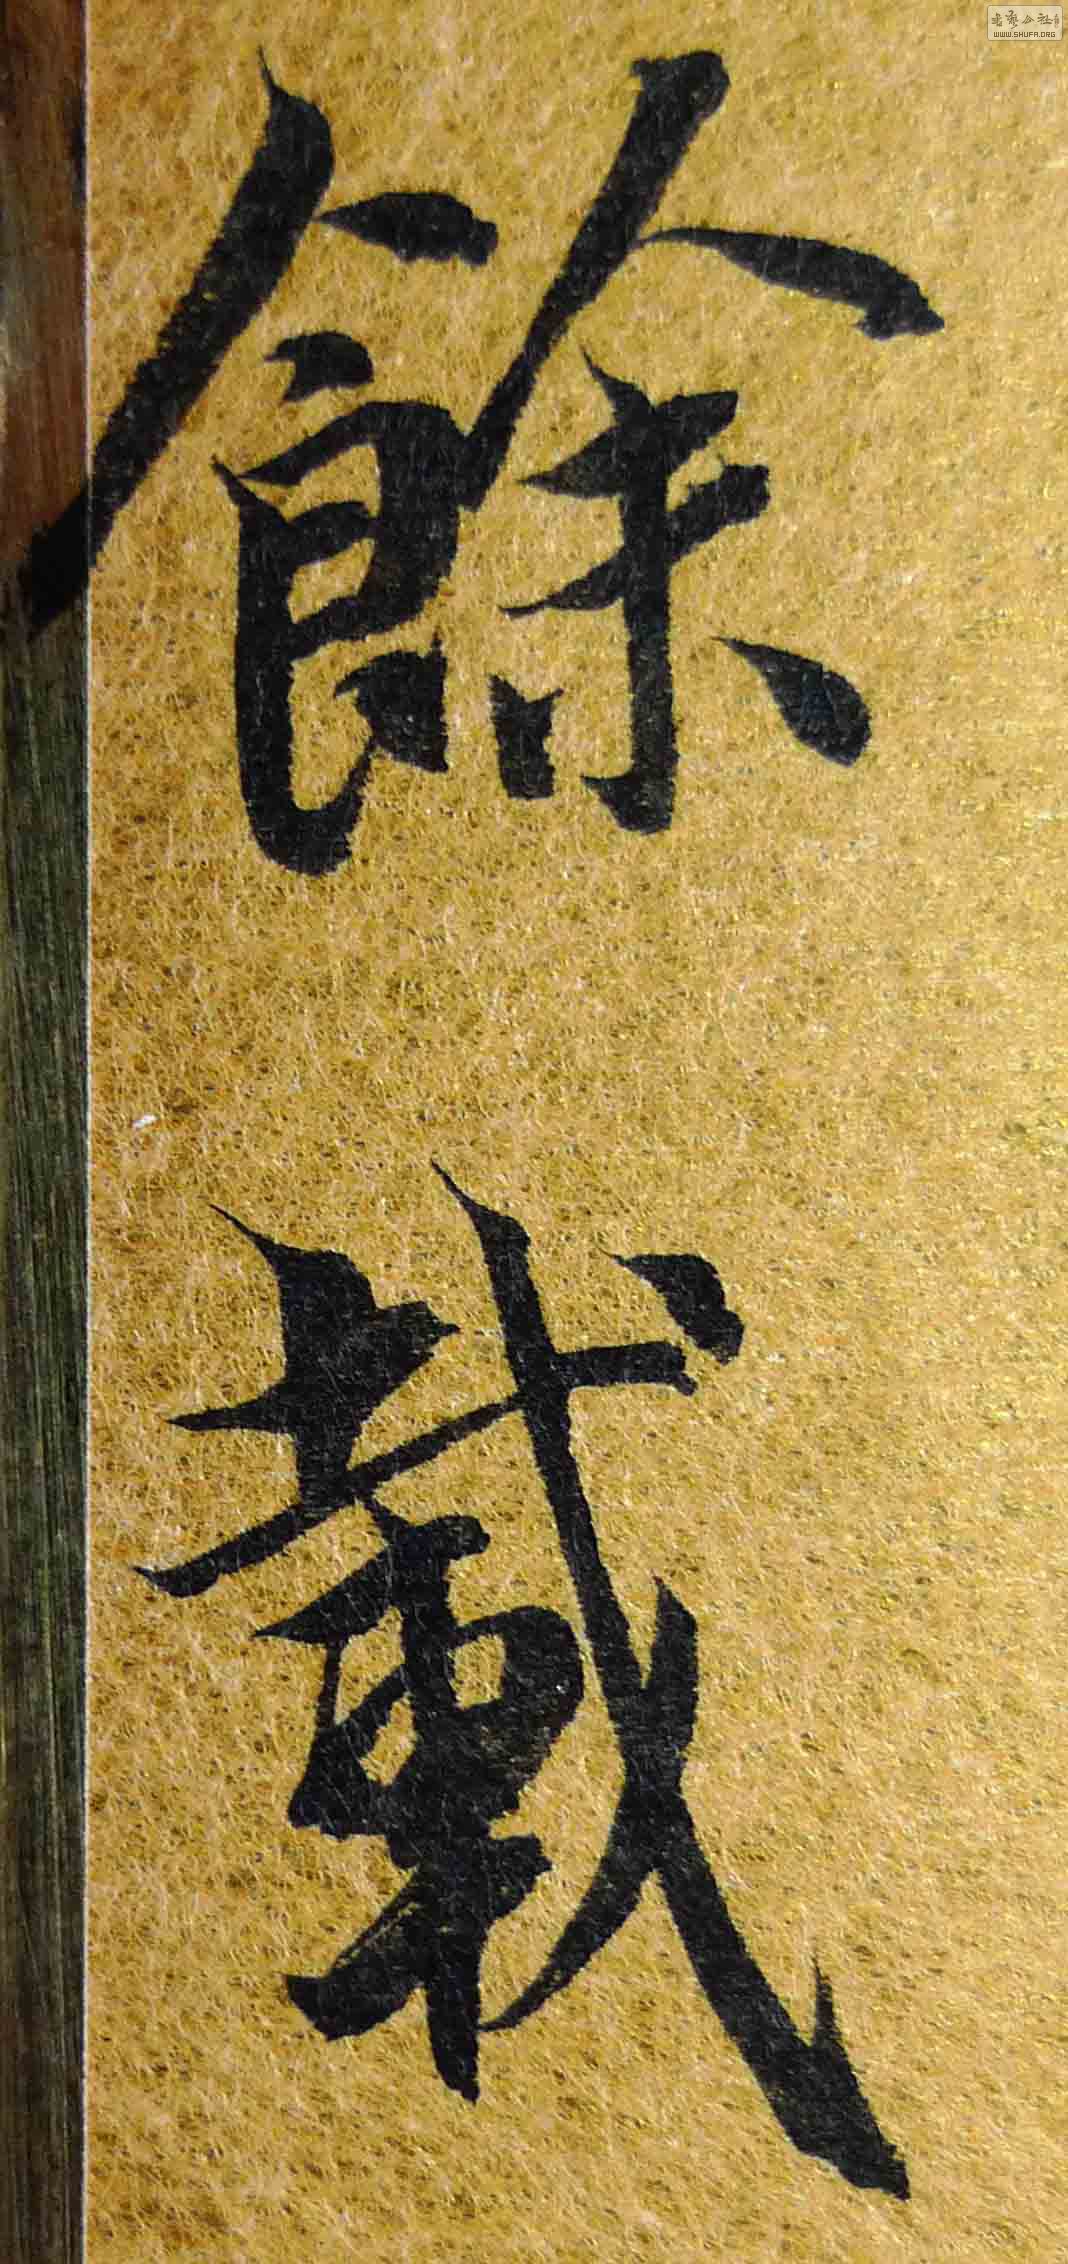 餘載
書藝公社
WWW.SHUFA.ORG